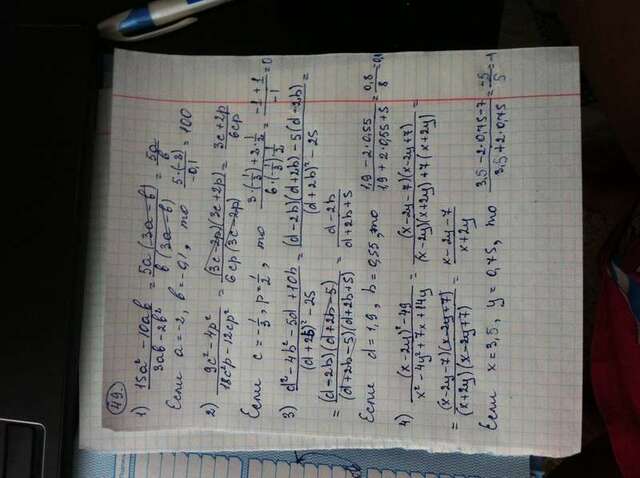 49.
1) (15a² - 10ab)/(3ab - 2b²) = (5a(3a - b))/(b(3a - b)) = 5a/b
Если a = -2, b = -0,1, то (5·(-2))/(-0,1) = 100
2) (9c² - 4p²)/(18c²p - 12cp²) = ((3c - 2p)(3c + 2p))/(6cp(3c - 2p)) = (3c + 2p)/(6cp)
Если c = -1/3, p = 1/2, то (3·(-1/3) + 2·1/2)/(6·(-1/3)·1/2) = (-1 + 1)/(-1) = 0
3) (d² - 4b² - 5d + 10b)/((d + 2b)² - 25) = ((d - 2b)(d + 2b) - 5(d - 2b))/((d + 2b)² - 25) =
= ((d - 2b)(d + 2b - 5))/((d + 2b - 5)(d + 2b + 5)) = (d - 2b)/(d + 2b + 5)
Если d = 1,9, b = 0,55, то (1,9 - 2·0,55)/(1,9 + 2·0,55 + 5) = 0,8/8 = 0,1
4) ((x - 2y)² - 49)/(x² - 4y² + 7x + 14y) = ((x - 2y - 7)(x - 2y + 7))/((x - 2y)(x + 2y) + 7(x + 2y)) =
= ((x - 2y - 7)(x - 2y + 7))/((x + 2y)(x - 2y + 7)) = (x - 2y - 7)/(x + 2y)
Если x = 3,5, y = 0,75, то (3,5 - 2·0,75 - 7)/(3,5 + 2·0,75) = -5/5 = -1